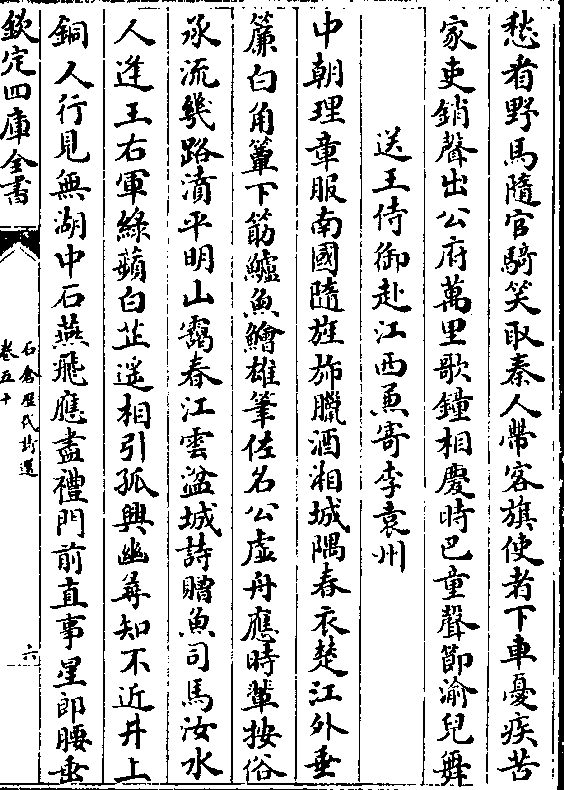 愁看野馬隨官騎笑取秦人帶客旗使者下車憂疾苦
家吏銷聲出公府萬里歌鐘相慶時巴童聲節渝兒舞
送王侍御赴江西兼寄李袁州
中朝理章服南國隨旌斾臘酒湘城隅春衣楚江外垂
簾白角簟下筯鱸魚鱠雄筆佐名公虚舟應時輩按俗
承流幾路清平明山靄春江雲湓城詩贈魚司馬汝水
人逢王右軍綠蘋白芷遥相引孤興幽尋知不近井上
銅人行見無湖中石燕飛應盡禮門前直事星郎腰垂
欽定四庫全書
石倉歷代詩選
卷五十
六